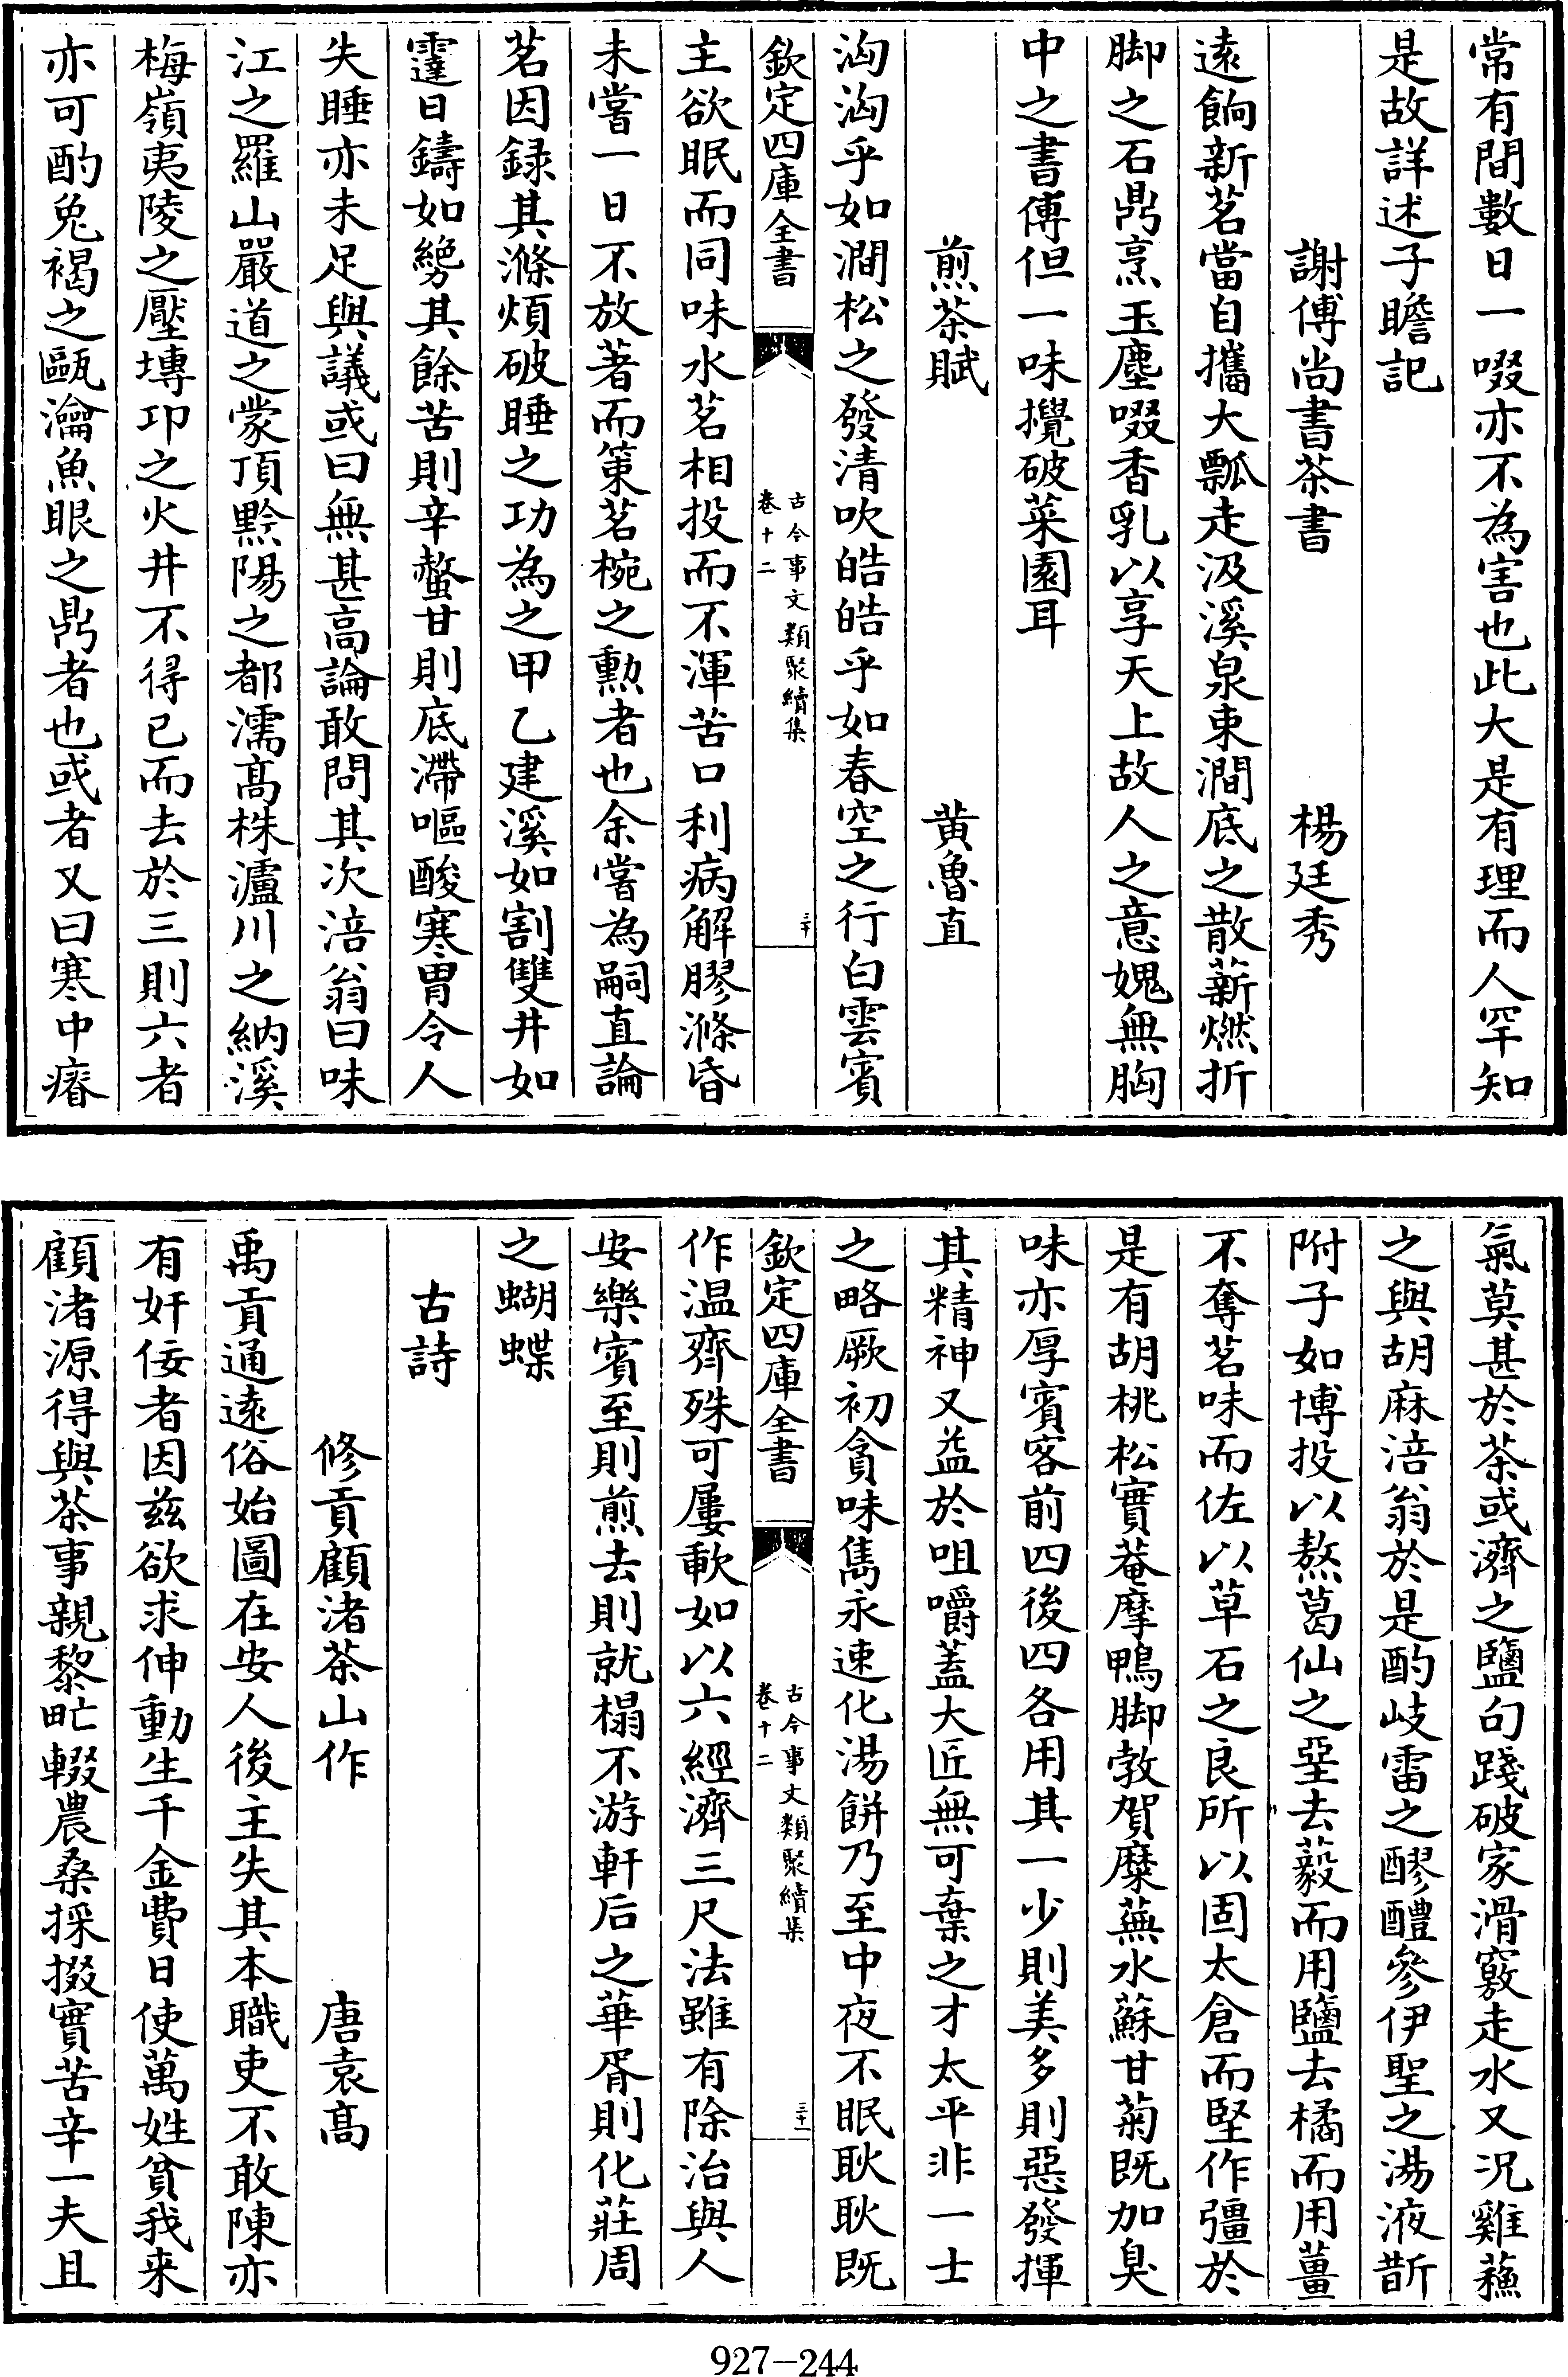 常有間數日一啜亦不為害也此大是有理而人罕知
是故詳述子瞻記
謝傅尚書茶書 楊廷秀
遠餉新茗當自攜大瓢走汲溪泉束澗底之散薪燃折
脚之石鼎烹玉塵啜香乳以享天上故人之意媿無胸
中之書傳但一味攪破菜園耳
煎茶賦 黄魯直
洶洶乎如澗松之發清吹皓皓乎如春空之行白雲賓
欽定四庫全書 古今事文類聚續集 卷十二 三十
主欲眠而同味水茗相投而不渾苦口利病解膠滌昏
未嘗一日不放著而策茗椀之勲者也余嘗為嗣直論
茗因録其滌煩破睡之功為之甲乙建溪如割雙井如
霆日鑄如䋲其餘苦則辛螫甘則底滯嘔酸寒胃令人
失睡亦未足與議或曰無甚高論敢問其次涪翁曰味
江之羅山嚴道之蒙頂黔陽之都濡髙株瀘川之納溪
梅嶺夷陵之壓塼卭之火井不得已而去於三則六者
亦可酌兔褐之甌瀹魚眼之鼎者也或者又曰寒中瘠
氣莫甚於茶或濟之鹽句踐破家滑竅走水又况雞蘓
之與胡麻涪翁於是酌岐雷之醪醴參伊聖之湯液斮
附子如博投以熬葛仙之堊去藙而用鹽去橘而用薑
不奪茗味而佐以草石之良所以固太倉而堅作彊於
是有胡桃松實菴摩鴨脚敦賀糜蕪水蘇甘菊既加臭
味亦厚賓客前四後四各用其一少則美多則惡發揮
其精神又益於咀嚼蓋大匠無可棄之才太平非一士
之略厥初貪味雋永速化湯餅乃至中夜不眠耿耿既
欽定四庫全書 古今事文類聚續集 卷十二 三十一
作温齊殊可屢歃如以六經濟三尺法雖有除治與人
安樂賓至則煎去則就榻不游軒后之華胥則化莊周
之蝴蝶
古詩
修貢顧渚茶山作 唐袁髙
禹貢通遠俗始圖在安人後主失其本職吏不敢陳亦
有奸佞者因兹欲求伸動生千金費日使萬姓貧我来
顧渚源得與茶事親黎甿輟農桑採掇實苦辛一夫且
927-244